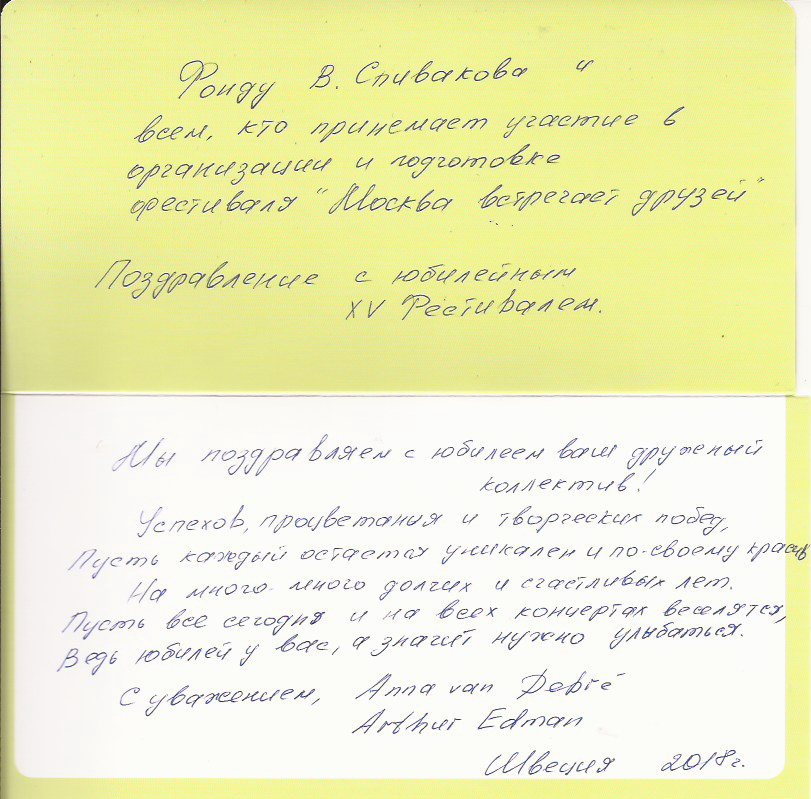 Фонду В. Спивакова и
всем, кто принемает участие в
организации и подготовке
фестиваля "Москва встречает друзей"
Поздравление с юбилейным
XV Фестивалем.
Мы поздравляем с юбилеем ваш друженый
коллектив!
Успехов, процветания и творческих побед,
Пусть каждый остается уникален и по-своему красив
На много-много долгих и счастливых лет.
Пусть все сегодня и на всех концертах веселятся,
Ведь юбилей у вас, а значит нужно улыбаться.
С уважением, Anna van
Arthur Edman
Швеция 2018г.